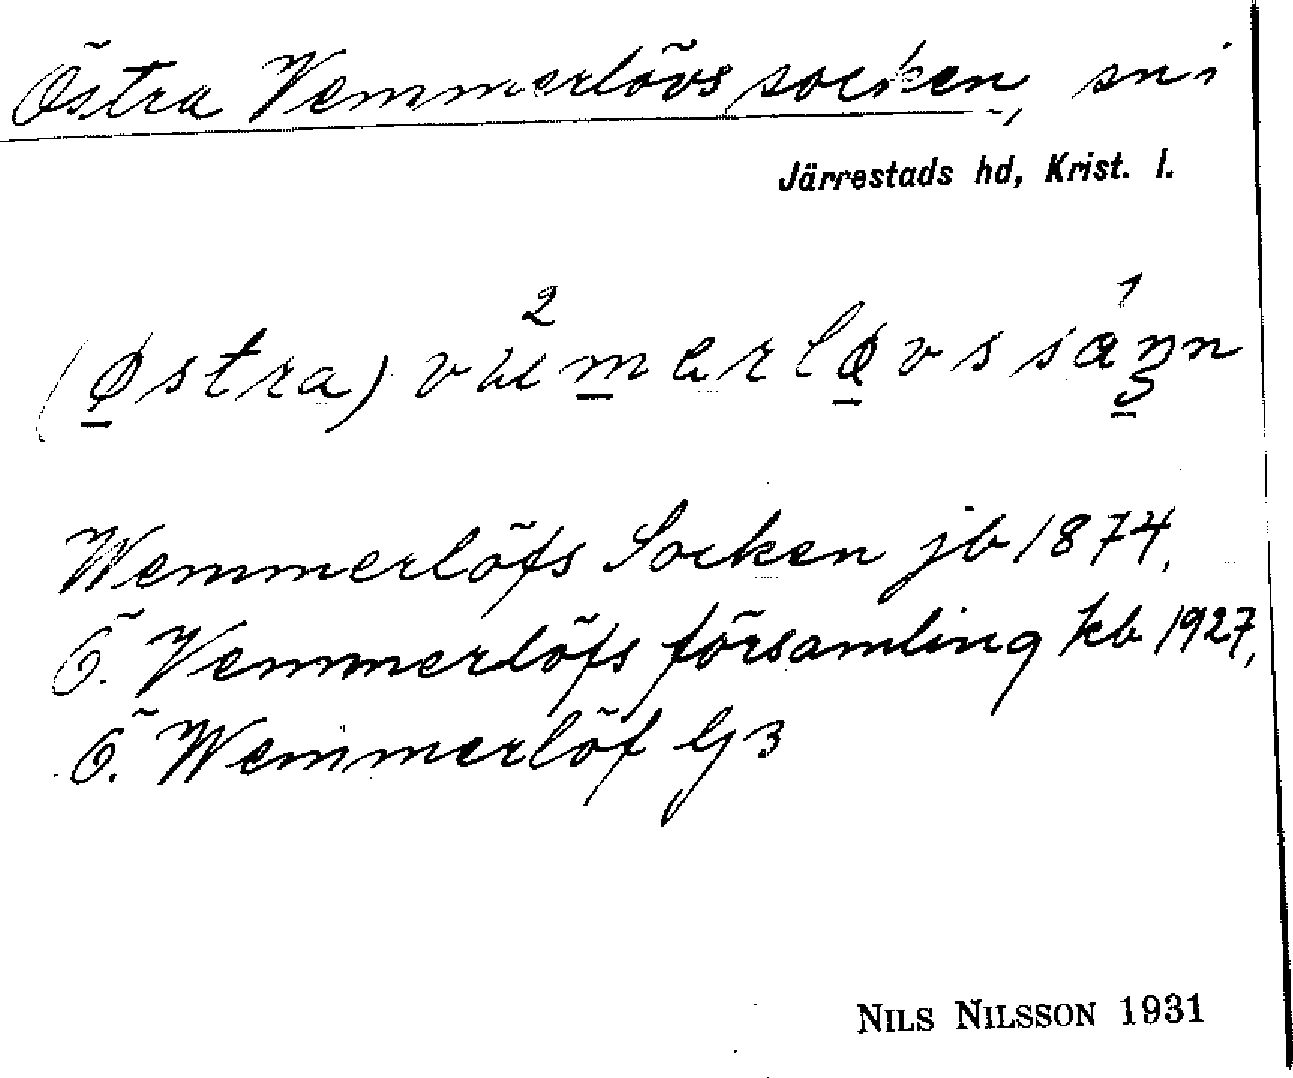 Östra Vemmerlövs socken, sn i
Järrestads hd, Krist. l.
(østra)
Wemmerlöfs Socken jb 1874,
Ö. Vemmerlöfs församling kb 1927,
Ö. Wemmerlöf G 3
NILS NILSSON 1931